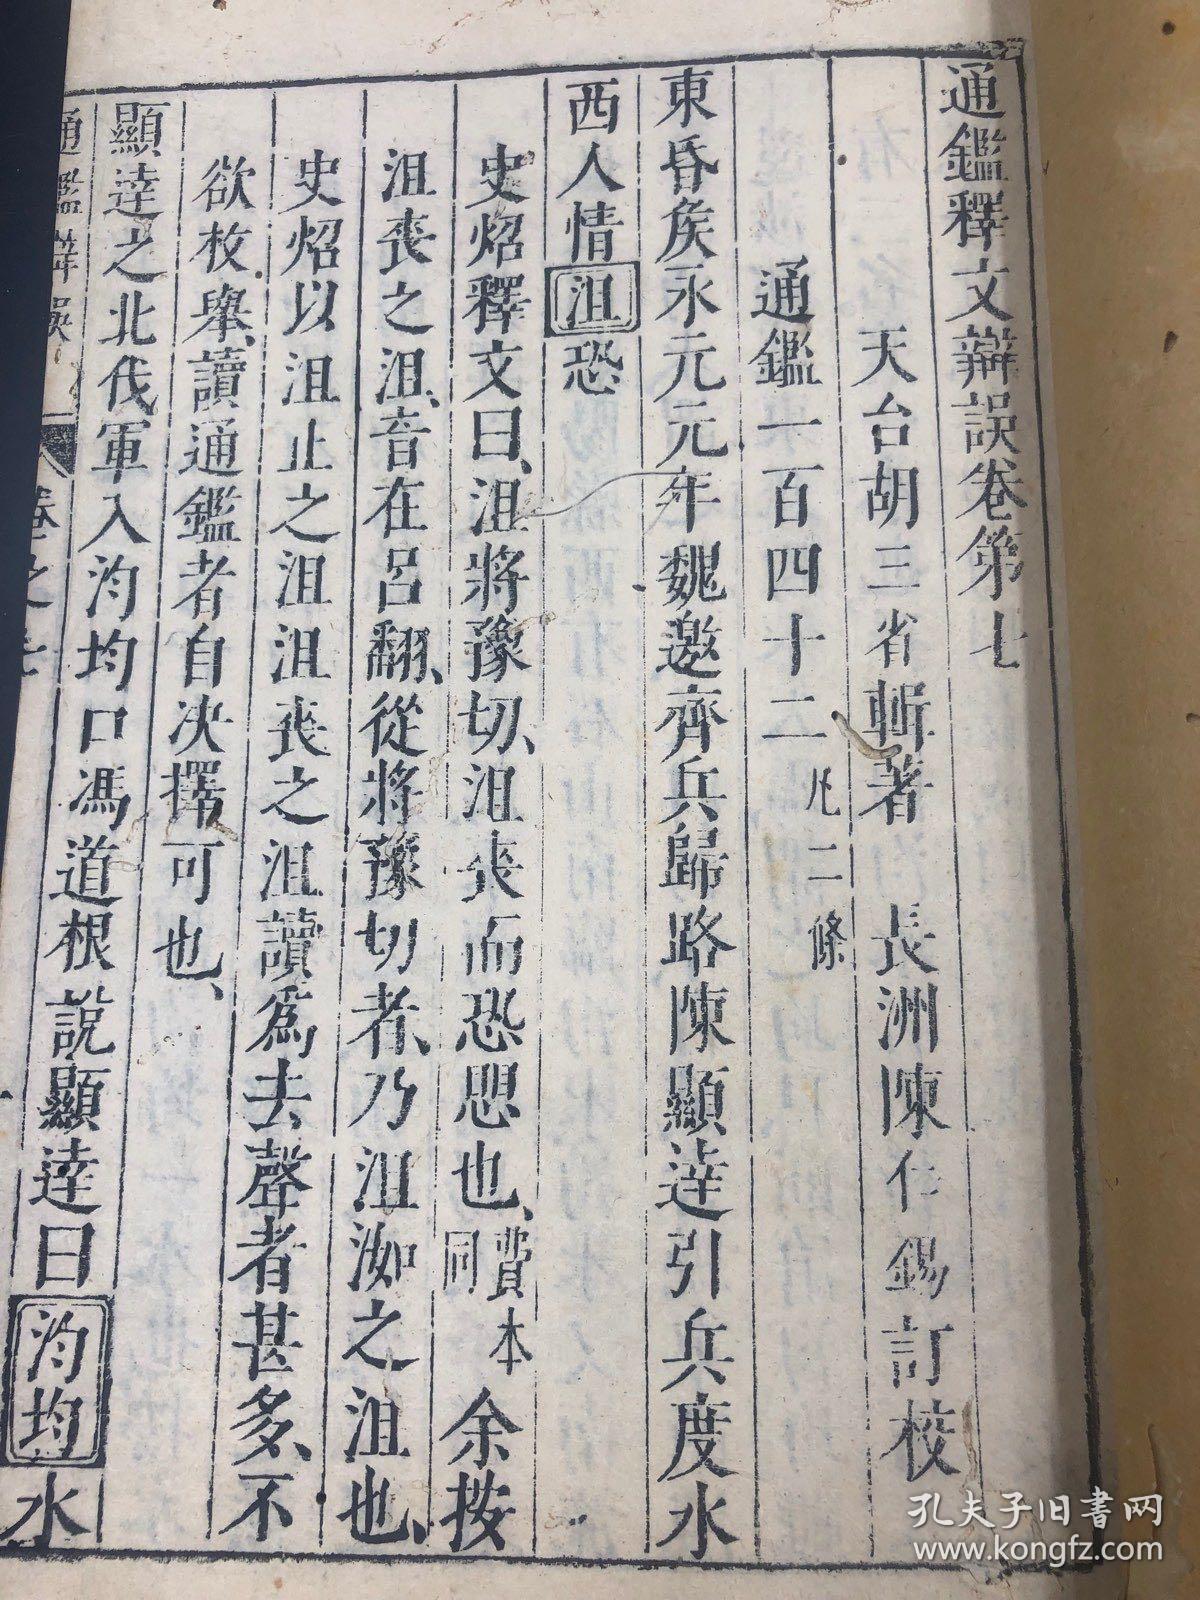 通鑑釋文辯誤卷第七
天台胡三省輯著 長洲陳仁錫訂校
通鑑一百四十二 凡二條
東昏矦永元元年魏邀齊兵歸路陳顯逹引兵度水
西人情沮恐
史炤釋文曰、沮將豫切、沮喪而恐思也、費本同 余按
沮喪之沮、音在呂翻、從將豫切者、乃沮洳之沮也、
史炤以沮止之沮沮喪之沮讀爲去聲者甚多、不
欲枚舉、讀通鑑者自決擇可也、
顯逹之北伐軍入汮均口馮道根說顯逹曰汮均水
通鑑辯誤 卷之七
孔夫子旧书网
www.kongfz.com